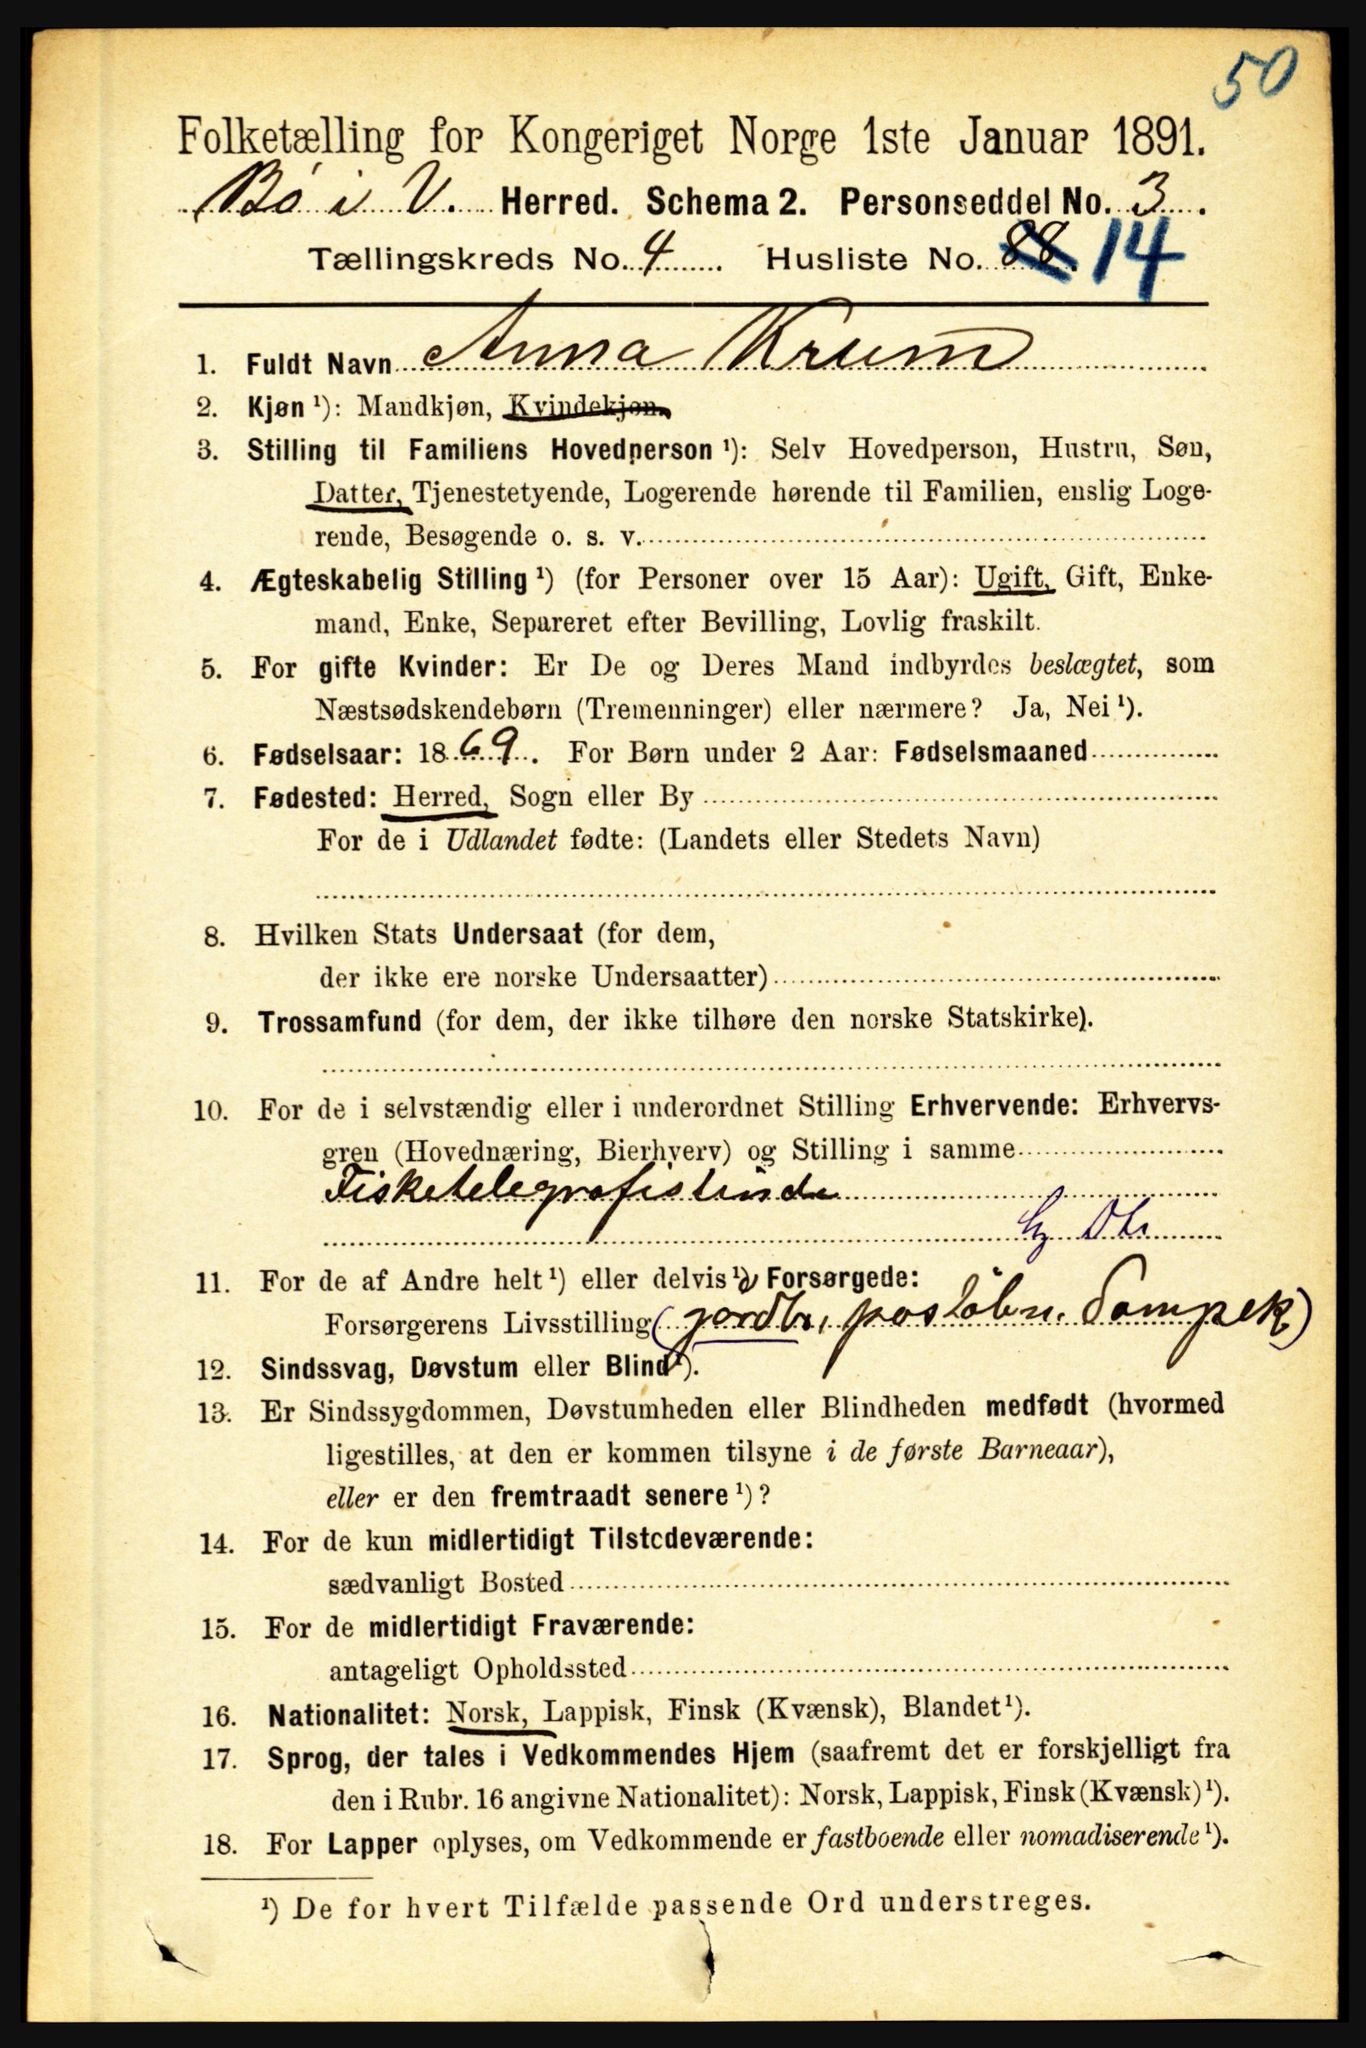 50
Folketælling for Kongeriget Norge 1ste Januar 1891.
Bö i V. Herred. Schema 2. Personseddel No. 3.
Tællingskreds No. 4. Husliste No. 88. 14
1. Fuldt Navn Anna Krum
2. Kjøn ¹): Mandkjøn, Kvindekjøn.
3. Stilling til Familiens Hovedperson ¹): Selv Hovedperson, Hustru, Søn,
Datter, Tjenestetyende, Logerende hørende til Familien, enslig Loge-
rende, Besøgende o. s. v.
4. Ægteskabelig Stilling ¹) (for Personer over 15 Aar): Ugift, Gift, Enke-
mand, Enke, Separeret efter Bevilling, Lovlig fraskilt.
5. For gifte Kvinder: Er De og Deres Mand indbyrdes beslægtet, som
Næstsødskendebørn (Tremenninger) eller nærmere? Ja, Nei ¹).
6. Fødselsaar: 1869. For Børn under 2 Aar: Fødselsmaaned
7. Fødested: Herred, Sogn eller By
For de i Udlandet fødte: (Landets eller Stedets Navn)
8. Hvilken Stats Undersaat (for dem,
der ikke ere norske Undersaatter)
9. Trossamfund (for dem, der ikke tilhøre den norske Statskirke).
10. For de i selvstændig eller i underordnet Stilling Erhvervende: Erhvervs-
gren (Hovednæring, Bierhverv) og Stilling i samme
Fisketelegrafistinde
11. For de af Andre helt ¹) eller delvis ¹) Forsørgede:
Forsørgerens Livsstilling (jordbr,
12. Sindssvag, Døvstum eller Blind ¹).
13. Er Sindssygdommen, Døvstumheden eller Blindheden medfødt (hvormed
ligestilles, at den er kommen tilsyne i de første Barneaar),
eller er den fremtraadt senere ¹)?
14. For de kun midlertidigt Tilstedeværende:
sædvanligt Bosted
15. For de midlertidigt Fraværende:
antageligt Opholdssted
16. Nationalitet: Norsk, Lappisk, Finsk (Kvænsk), Blandet ¹).
17. Sprog, der tales i Vedkommendes Hjem (saafremt det er forskjelligt fra
den i Rubr. 16 angivne Nationalitet): Norsk, Lappisk, Finsk (Kvænsk) ¹).
18. For Lapper oplyses, om Vedkommende er fastboende eller nomadiserende ¹).
¹) De for hvert Tilfælde passende Ord understreges.